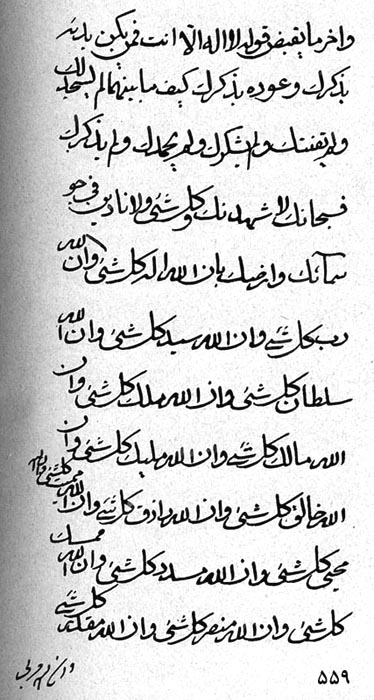 واخر ما يقبض قوله لا اله الا انت فمن يكن بدئه
بذكرك وعوده بذكرك كيف ما بينهما لم يسجد لك
ولم يقنتك ولم يشكرك ولم يحمدك ولم يذكرك
فسبحانك لاشهدنك وكل شئ ولانادين في جو
سمائك وارضك بان الله اله كل شئ وان الله
رب كل شئ وان الله سيد كل شئ وان الله
سلطان كل شئ وان الله ملك كل شئ وان
الله مالك كل شئ وان الله مليك كل شئ وان
الله خالق كل شئ وان الله رازق كل شئ وان الله
مميت كل شئ وان الله
محيي كل شئ وان الله مسدد كل شئ وان الله ممسك
كل شئ وان الله منصر كل شئ وان الله مقلد كل شئ
۵۵۹